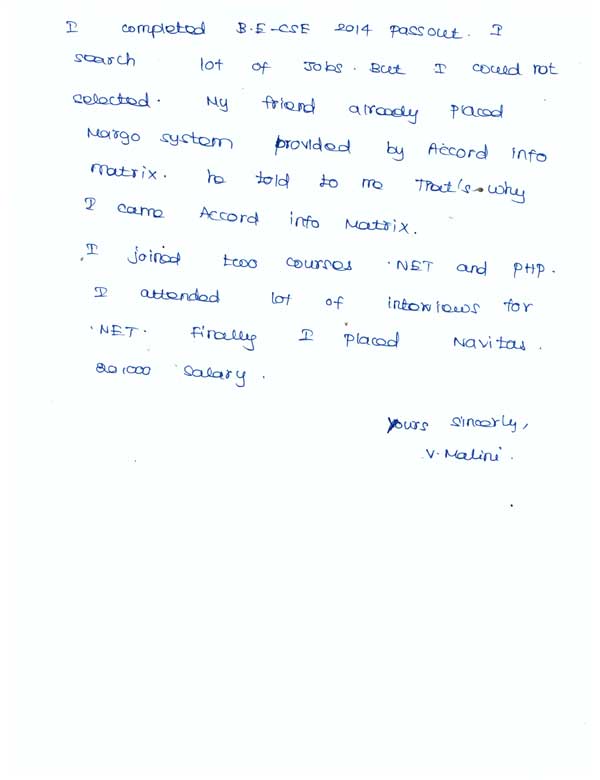 I completed B.E-CSE 2014 passout. I
search lot of Jobs. But I could not
selected. My friend already placed
Margo system provided by Accord info
matrix. he told to me That's why
I came Accord info Matrix.
I joined two courses .NET and PHP.
I attended lot of interviews for
.NET. Finally I placed Navitas.
salary.
yours sincerly,
V. Malini.